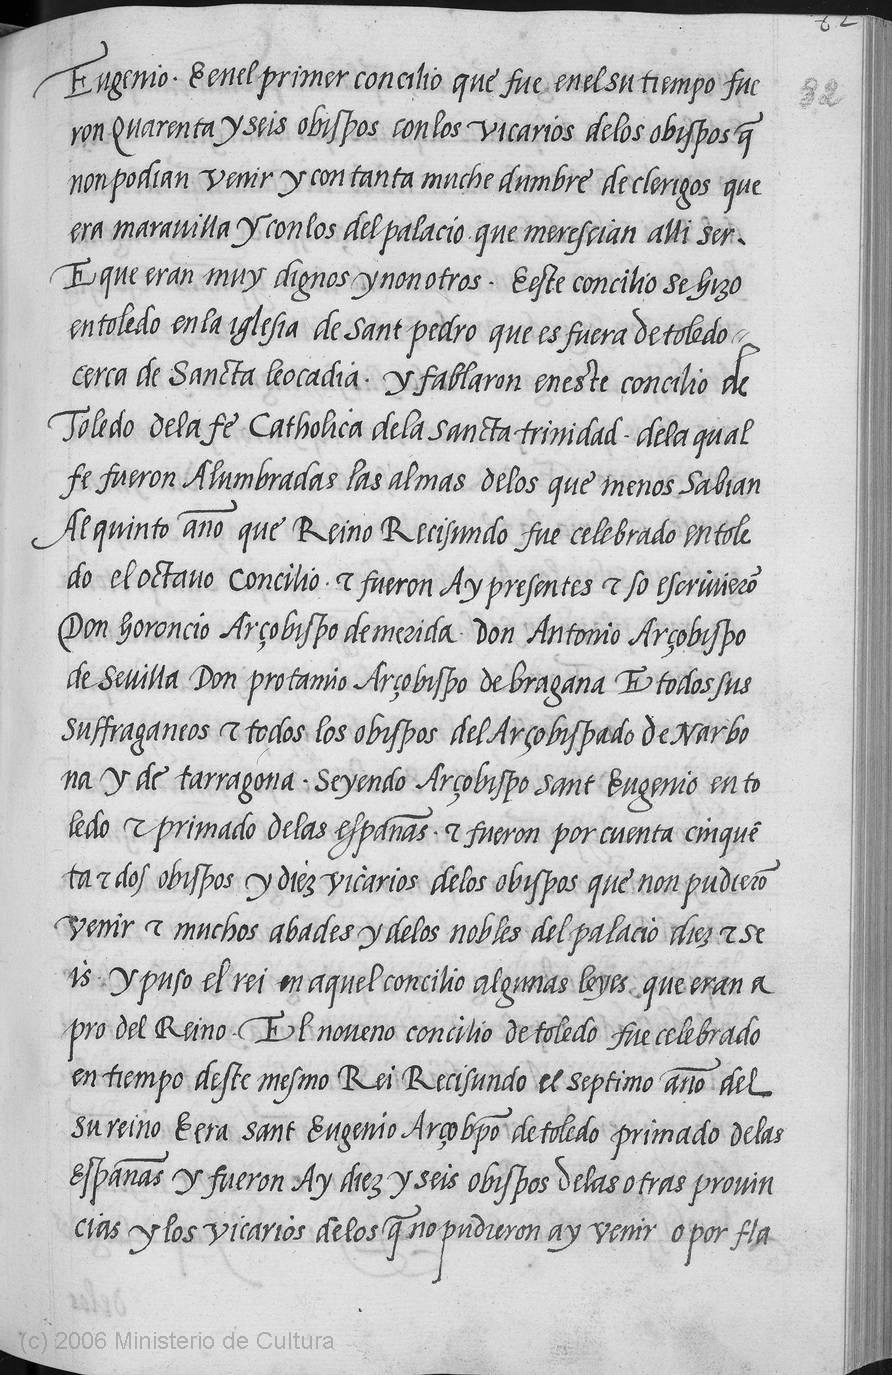 62
32
Eugenio. E enel primer concilio que fue enel su tiempo fue
ron Quarenta y seis obispos con los vicarios delos obispos q̃
non podian venir y con tanta muche dumbre de clerigos que
era maravilla y con los del palacio que meresçian alli ser.
E que eran muy dignos y non otros. E este concilio se hizo
en toledo en la iglesia de Sant pedro que es fuera de toledo
cerca de Sancta leocadia. y fablaron en este concilio de
Toledo de la fe Catholica de la Sancta trinidad. de la qual
fe fueron Alumbradas las almas delos que menos Sabian
Al quinto año que Reino Recisundo fue celebrado en tole
do el octauo Concilio. τ fueron Ay presentes τ so escriuierõ
Don horoncio Arçobispo de merida. Don Antonio Arçobispo
de Seuilla Don protamio Arçobispo de bragana E todos sus
Suffraganeos τ todos los obispos del Arçobispado de Narbo
na y de tarragona. Seyendo Arçobispo Sant Eugenio en to
ledo τ primado delas españas. τ fueron por cuenta cinquẽ
ta τ dos obispos y diez vicarios delos obispos que non pudierõ
venir τ muchos abades y delos nobles del palacio diez τ se
is. y puso el rei en aquel concilio algunas leyes que eran a
pro del Reino. El noueno concilio de toledo fue celebrado
en tiempo deste mesmo Rei Recisundo el septimo año del
Su reino E era Sant Eugenio Arçobpõ de toledo primado delas
Españas y fueron Ay diez y seis obispos delas otras prouin
cias y los vicarios delos q̃ no pudieron ay venir o por fla
(c) 2006 Ministerio de Cultura